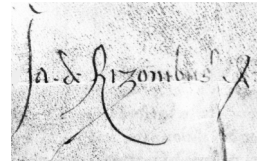 Ja. de Rizonibus